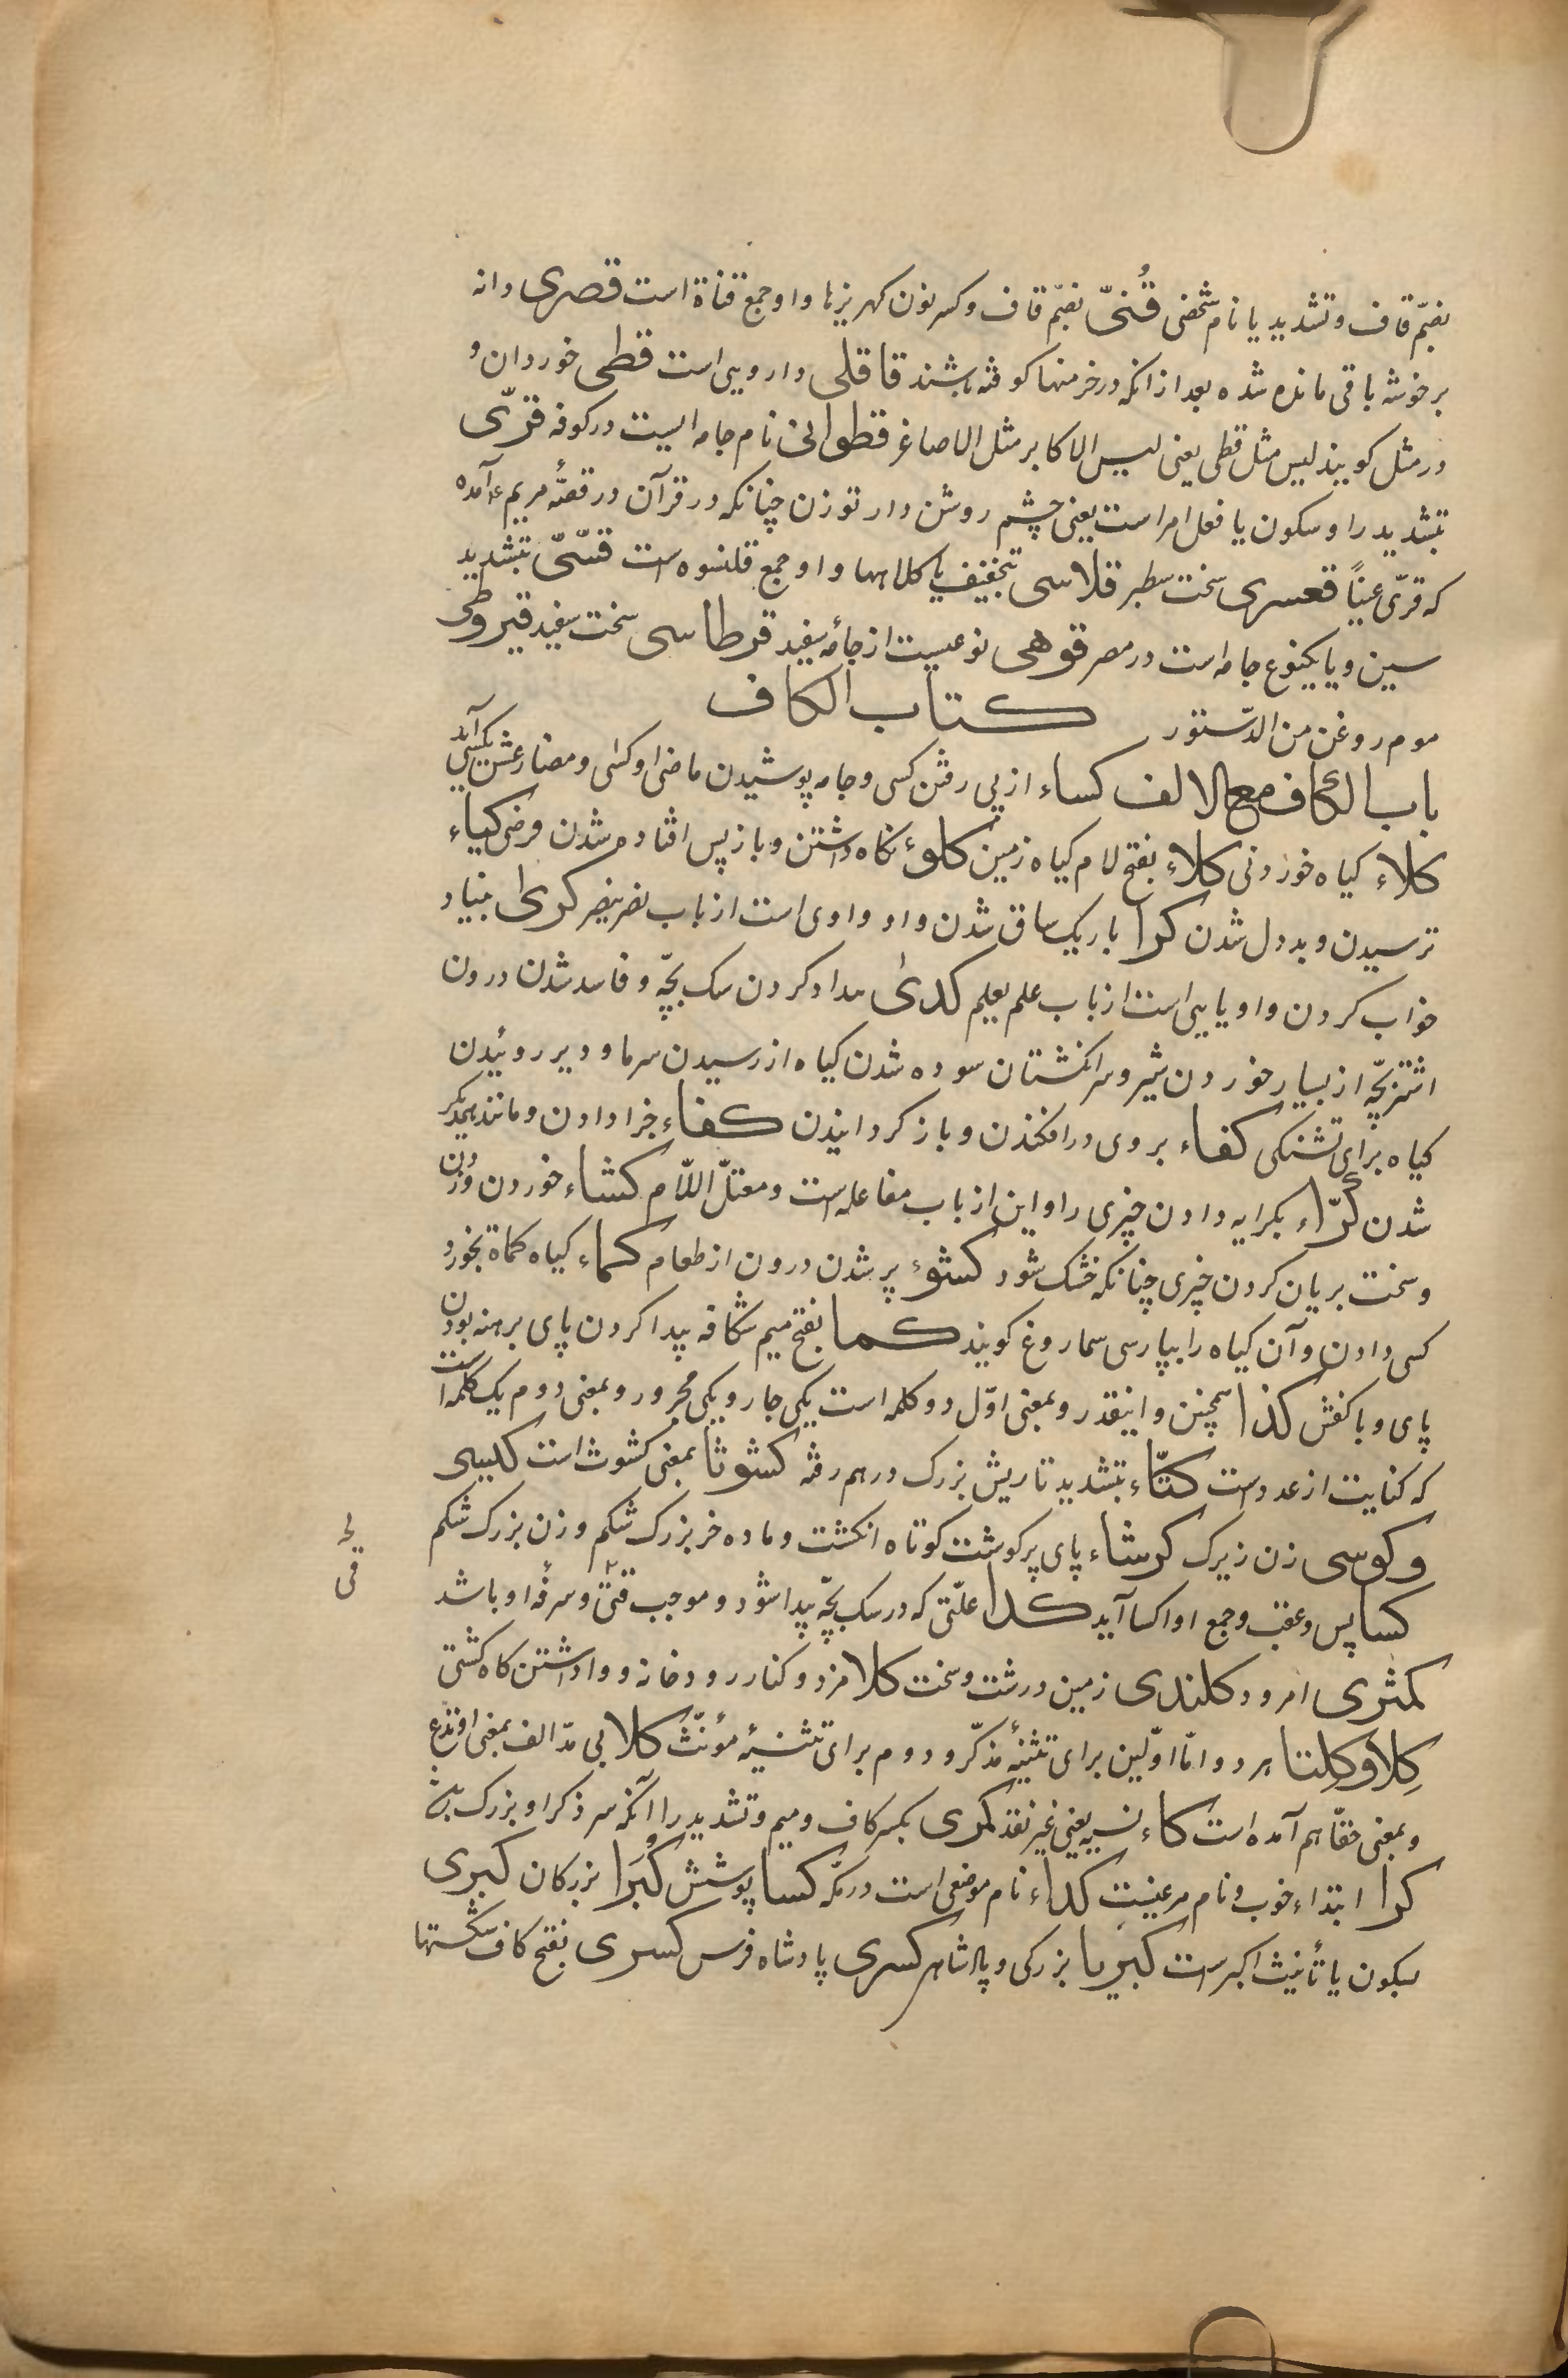 بضمّ قاف و تشدید یا نام شخصی قُنیّ بضمّ قاف و کسر نون کهریزها و او جمع قناة است قصری دانه
بر خوشه باقی مانده شده بعد از انکه در خرمنها کوفته باشند قاقلی دارویی است قطی خوردان و
در مثل کویند لیس مثل قطی یعنی لیس الاکابر مثل الاصاغر قطوانی نام جامه ایست در کوفه قرّی
بتشدید را و سکون یا فعل امر است یعنی چشم روشن دار تو زن چنانکه در قرآن در قصّهٔ مریم ع آمده
که قرّی عیناً قعسری سخت سطبر قلاسی بتخفیف یا کلاهها و او جمع قلنسوه است قسّیّ بتشدید
سین و یا یکنوع جامه است در مصر قوهی نوعیست از جامهٔ سفید قرطاسی سخت سفید قیروطی
موم روغن من الدّستور کتاب الکاف
باب الکاف مع الالف کساء از پی رفتن کسی و جامه پوشیدن ماضی او کسی و مضارعش یکسی آید
کلاء کیاه خوردنی کلاء بفتح لام کیاه زمین کلوء نکاه داشتن و باز پس افتاده شدن قرضی کیاء
ترسیدن و بد دل شدن کرا باریک ساق شدن و او واوی است از باب نصر ینصر کری بنیاد
خواب کردن و او یایی است از باب علم یعلم کدی مداد کردن سک بچّه و فاسد شدن درون
اشتر بچّه از بسیار خوردن شیر و سر انکشتان سوده شدن کیاه از رسیدن سرما و دیر روئیدن
کیاه برای تشنکی کفاء بر وی در افکندن و باز کردانیدن کفاء جزا دادن و مانند همدیکر
شدن کرّاء بکرایه دادن چیزی را و این از باب مفاعله است و معتلّ اللّام کشاء خوردن و زدن
و سخت بریان کردن چیزی چنانکه خشک شود کشوء پر شدن درون از طعام کماء کیاه کماة بخورد
کسی دادن و آن کیاه را بپارسی سماروغ کویند کما بفتح میم شکافه پیدا کردن پای برهنه بودن
پای و با کفش کذا همچنین و اینقدر و بمعنی اوّل دو کلمه است یکی جار و یکی مجرور و بمعنی دوم یک کلمه است
که کنایت از عدد است کثّاء بتشدید تا ریش بزرک درهم رفته کشوثا بمعنی کشوث است کیسی
و کوسی زن زیرک کرشاء پای پر کوشت کوتاه انکشت و ماده خر بزرک شکم و زن بزرک شکم
کسا پس و عقب و جمع او اکسا آید کدا علّتی که در سک بچّه پیدا شود و موجب قئ و سرفهٔ او باشد
کمثری امرود کلندی زمین درشت و سخت کلا مزد و کنار رودخانه و واداشتن کاه کشتی
کِلا و کِلتا هر دو امّا اوّلین برای تثنیهٔ مذکّر و دوم برای تثنیهٔ مؤنّث کلا بی مدّ الف بمعنی اوندع
و بمعنی حقّا هم آمده است کاء نسیه یعنی غیر نقد کمری بکسر کاف و میم و تشدید را آنکه سر ذکر او بزرک باشد
کرا ابتداء خوب و نام مرغیست کداء نام موضعی است در مکّه کسا پوشش کُبَرا بزرکان کبری
بسکون یا تأنیث اکبر است کبریا بزرکی و پادشاهی کسری پادشاه فرس کسری بفتح کاف شکستها